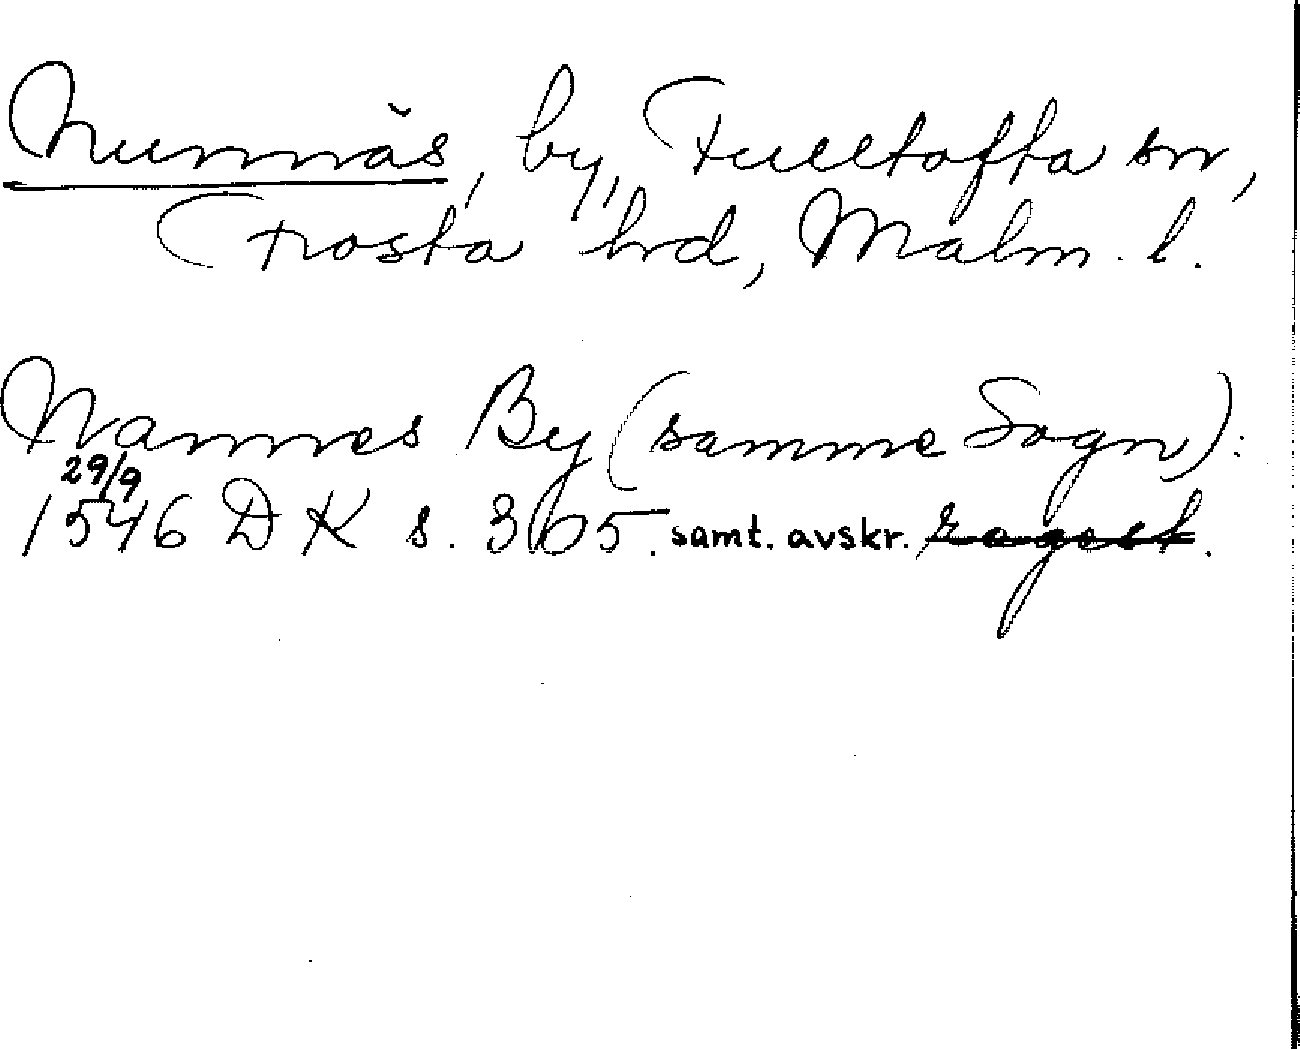 Nunnäs, by, Fulltofta sn,
Frosta hd, Malm. l.
Nannnes By (samme Sogn):
29/9
1546 DK s. 365. samt. avskr.